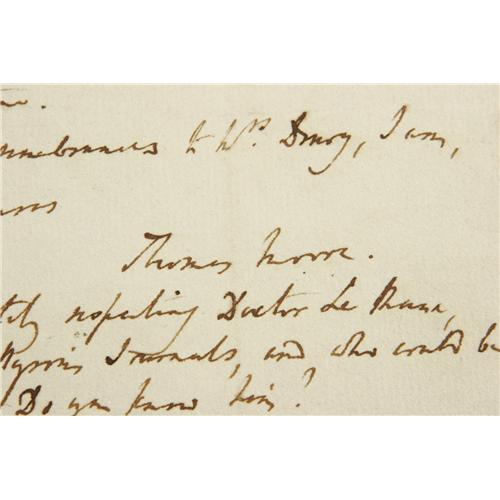 to Mrs. Drury, I am,
Thomas Moore.
respecting Doctor Le Mann,
Byron's Journals, and who could be
Do you know him?